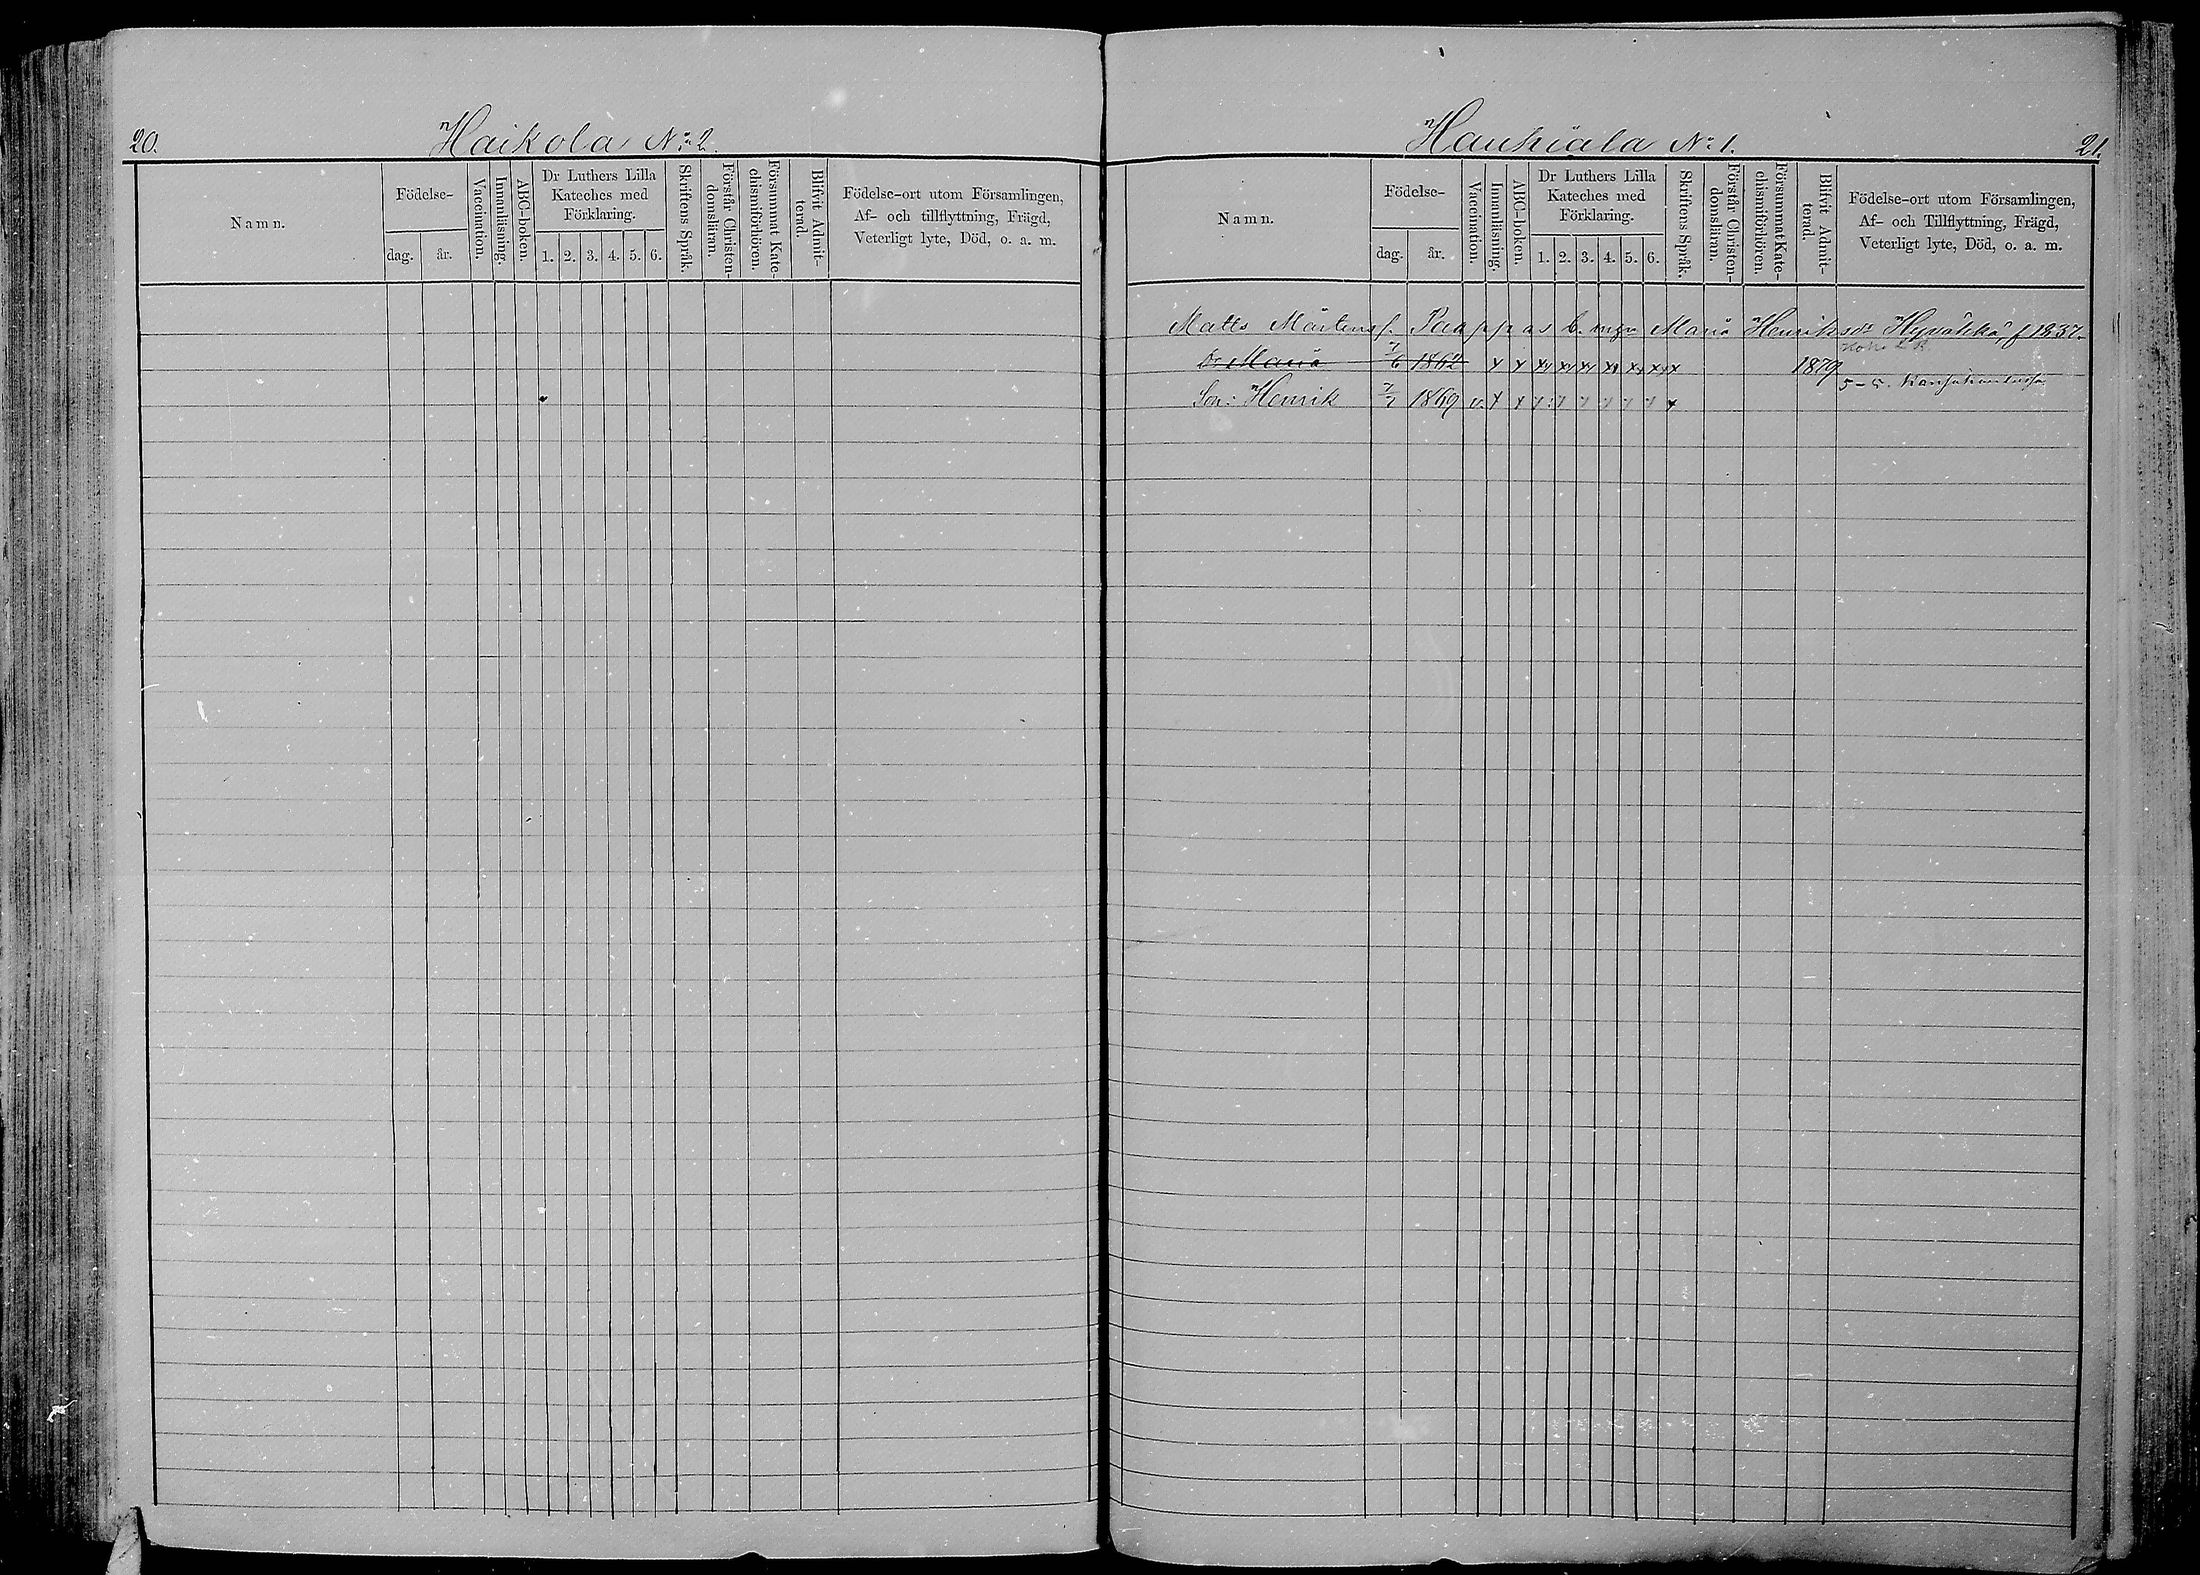 20.
Haikola No 2.
Namn.
Födelse-
dag.
år.
Vaccination.
Innanläsning.
ABC-boken.
Dr Luthers Lilla
Kateches med
Förklaring.
1. 2. 3. 4. 5. 6.
Skriftens Språk.
Förstår Christen-
domsläran.
Försummat Kate-
chismiförhören.
Blifvit Admit-
terad.
Födelse-ort utom Församlingen,
Af- och tillflyttning, Frägd,
Veterligt lyte, Död, o. a. m.
Hauhiala No 1.
21.
Namn.
Födelse-
dag.
år.
Vaccination.
Innanläsning.
ABC-boken.
Dr Luthers Lilla
Kateches med
Förklaring.
1. 2. 3. 4. 5. 6.
Skriftens Språk.
Förstår Christen-
domsläran.
Försummat Kate-
chismiförhören.
Blifvit Admit-
terad.
Födelse-ort utom Församlingen,
Af- och Tillflyttning, Frägd,
Veterligt lyte, Död, o. a. m.
Matts Mårtens s. Paappas b. m. Maria Henriksdr f 1837.
Dr Maria 7/6 1862 x x x x x x x x x 1879
Son: Henrik 7/7 1869 v. x x